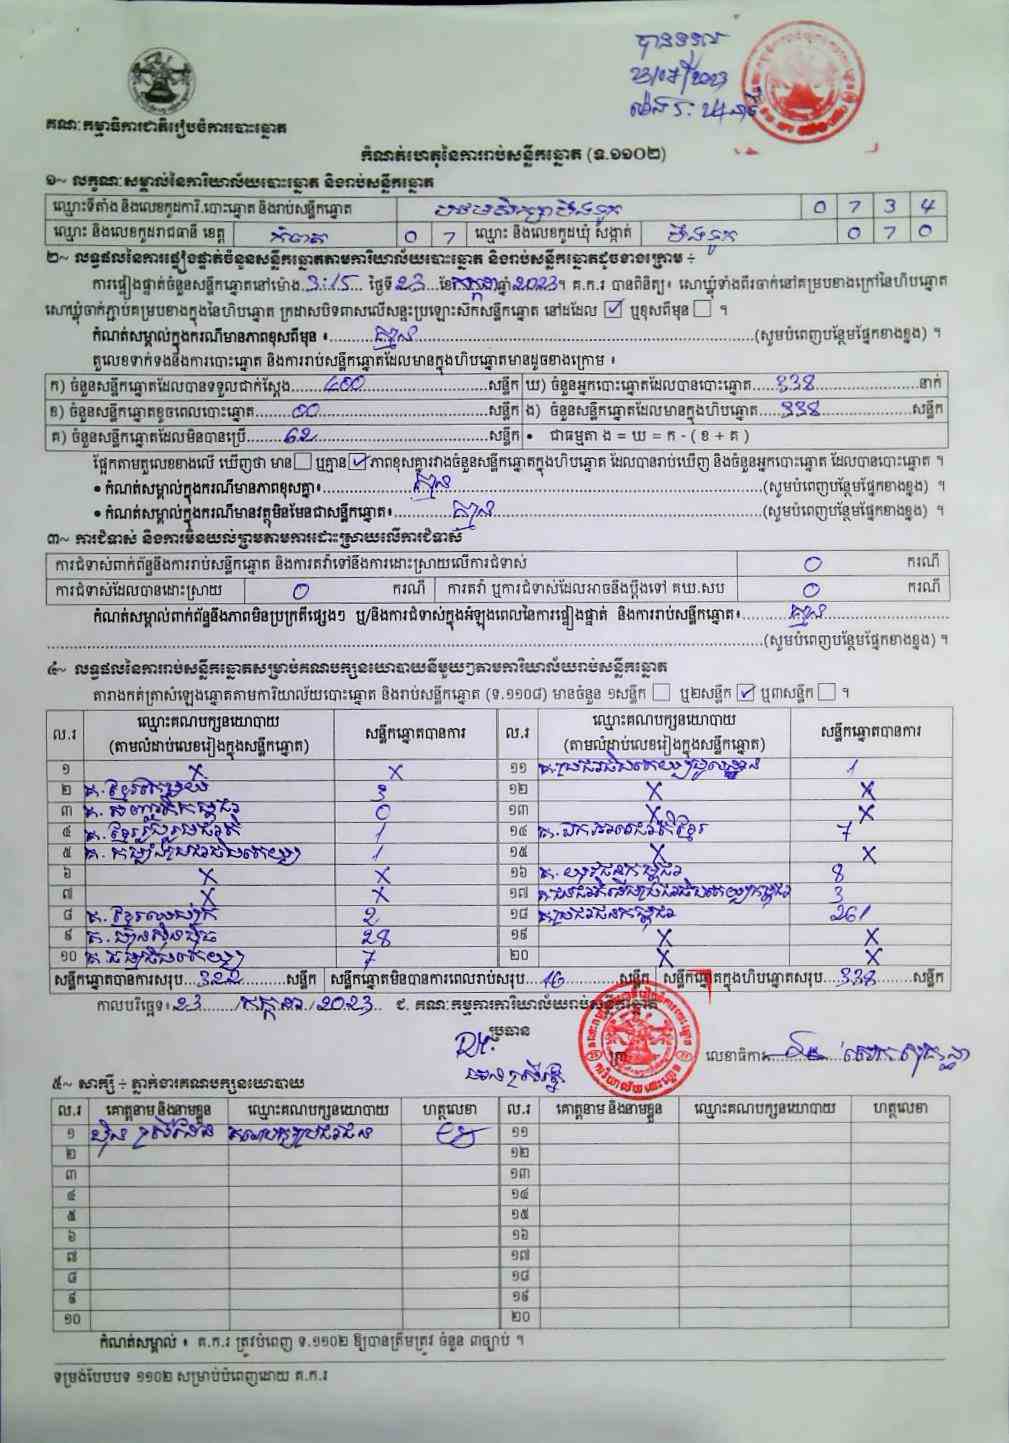 បានទទួល
23/07/2023
គណៈកម្មាធិការជាតិរៀបចំការបោះឆ្នោត
កំណត់ហេតុនៃការរាប់សន្លឹកឆ្នោត (ទ.១១០២)
១~ លក្ខណៈសម្គាល់នៃការិយាល័យបោះឆ្នោត និងរាប់សន្លឹកឆ្នោត
ឈ្មោះទីតាំង និងលេខកូដការិ.បោះឆ្នោត និងរាប់សន្លឹកឆ្នោត បឋមសិក្សាបឹងទូក 0 7 3 4
ឈ្មោះ និងលេខកូដរាជធានី ខេត្ត កំពត 0 7 ឈ្មោះ និងលេខកូដឃុំ សង្កាត់ បឹងទូក 0 7 0
២~ លទ្ធផលនៃការផ្ទៀងផ្ទាត់ចំនួនសន្លឹកឆ្នោតតាមការិយាល័យបោះឆ្នោត និងរាប់សន្លឹកឆ្នោតដូចខាងក្រោម ÷
ការផ្ទៀងផ្ទាត់ចំនួនសន្លឹកឆ្នោតនៅម៉ោង 3:15 ថ្ងៃទី 23 ខែ កក្កដា ឆ្នាំ 2023។ គ.ក.រ បានពិនិត្យ៖ សោឃ្លុំទាំងពីរចាក់នៅគម្របខាងក្រៅនៃហិបឆ្នោត
សោឃ្លុំចាក់ភ្ជាប់គម្របខាងក្នុងនៃហិបឆ្នោត ក្រដាសបិទពាសលើសន្ទះប្រឡោះស៊កសន្លឹកឆ្នោត នៅដដែល ☑ ឬខុសពីមុន ☐ ។
កំណត់សម្គាល់ក្នុងករណីមានភាពខុសពីមុន ៖ គ្មាន (សូមបំពេញបន្ថែមផ្នែកខាងខ្នង) ។
តួលេខទាក់ទងនឹងការបោះឆ្នោត និងការរាប់សន្លឹកឆ្នោតដែលមានក្នុងហិបឆ្នោតមានដូចខាងក្រោម ៖
ក) ចំនួនសន្លឹកឆ្នោតដែលបានទទួលជាក់ស្តែង 400 សន្លឹក ឃ) ចំនួនអ្នកបោះឆ្នោតដែលបានបោះឆ្នោត 338 នាក់
ខ) ចំនួនសន្លឹកឆ្នោតខូចពេលបោះឆ្នោត 00 សន្លឹក ង) ចំនួនសន្លឹកឆ្នោតដែលមានក្នុងហិបឆ្នោត 338 សន្លឹក
គ) ចំនួនសន្លឹកឆ្នោតដែលមិនបានប្រើ 62 សន្លឹក • ជាធម្មតា ង = ឃ = ក - ( ខ + គ )
ផ្អែកតាមតួលេខខាងលើ ឃើញថា មាន ☐ ឬគ្មាន ☑ ភាពខុសគ្នារវាងចំនួនសន្លឹកឆ្នោតក្នុងហិបឆ្នោត ដែលបានរាប់ឃើញ និងចំនួនអ្នកបោះឆ្នោត ដែលបានបោះឆ្នោត ។
• កំណត់សម្គាល់ក្នុងករណីមានភាពខុសគ្នា៖ គ្មាន (សូមបំពេញបន្ថែមផ្នែកខាងខ្នង) ។
• កំណត់សម្គាល់ក្នុងករណីមានវត្ថុមិនមែនជាសន្លឹកឆ្នោត៖ គ្មាន (សូមបំពេញបន្ថែមផ្នែកខាងខ្នង) ។
៣~ ការជំទាស់ និងការមិនយល់ព្រមតាមការដោះស្រាយលើការជំទាស់
ការជំទាស់ពាក់ព័ន្ធនឹងការរាប់សន្លឹកឆ្នោត និងការតវ៉ាទៅនឹងការដោះស្រាយលើការជំទាស់ 0 ករណី
ការជំទាស់ដែលបានដោះស្រាយ 0 ករណី ការតវ៉ា ឬការជំទាស់ដែលអាចនឹងប្តឹងទៅ គឃ.សប 0 ករណី
កំណត់សម្គាល់ពាក់ព័ន្ធនឹងភាពមិនប្រក្រតីផ្សេងៗ ឬ/និងការជំទាស់ក្នុងអំឡុងពេលនៃការផ្ទៀងផ្ទាត់ និងការរាប់សន្លឹកឆ្នោត៖ គ្មាន
(សូមបំពេញបន្ថែមផ្នែកខាងខ្នង) ។
៤~ លទ្ធផលនៃការរាប់សន្លឹកឆ្នោតសម្រាប់គណបក្សនយោបាយនីមួយៗតាមការិយាល័យរាប់សន្លឹកឆ្នោត
តារាងកត់ត្រាសំឡេងឆ្នោតតាមការិយាល័យបោះឆ្នោត និងរាប់សន្លឹកឆ្នោត (ទ.១១០៨) មានចំនួន ១សន្លឹក ☐ ឬ២សន្លឹក ☑ ឬ៣សន្លឹក ☐ ។
ល.រ ឈ្មោះគណបក្សនយោបាយ (តាមលំដាប់លេខរៀងក្នុងសន្លឹកឆ្នោត) សន្លឹកឆ្នោតបានការ ល.រ ឈ្មោះគណបក្សនយោបាយ (តាមលំដាប់លេខរៀងក្នុងសន្លឹកឆ្នោត) សន្លឹកឆ្នោតបានការ
១ X X ១១ 1
២ គ. ខ្មែរ 3 ១២ X X
៣ គ. 0 ១៣ X X
៤ គ. ខ្មែររួបរួមជាតិ 1 ១៤ គ. ឯកភាពជាតិខ្មែរ 7
៥ គ. កម្លាំងប្រជាធិបតេយ្យ 1 ១៥ X X
៦ X X ១៦ គ. យុវជនកម្ពុជា 8
៧ X X ១៧ 3
៨ គ. ខ្មែរឈប់ក្រ 2 ១៨ គ. ប្រជាជនកម្ពុជា 261
៩ គ. ហ្វ៊ុនស៊ិនប៉ិច 28 ១៩ X X
១០ គ. ធម្មាធិបតេយ្យ 7 ២០ X X
សន្លឹកឆ្នោតបានការសរុប 322 សន្លឹក សន្លឹកឆ្នោតមិនបានការពេលរាប់សរុប 16 សន្លឹក សន្លឹកឆ្នោតក្នុងហិបឆ្នោតសរុប 338 សន្លឹក
កាលបរិច្ឆេទ៖ 23 / កក្កដា / 2023 ជ. គណៈកម្មការការិយាល័យរាប់សន្លឹកឆ្នោត
ប្រធាន
លេខាធិការ
៥~ សាក្សី ÷ ភ្នាក់ងារគណបក្សនយោបាយ
ល.រ គោត្តនាម និងនាមខ្លួន ឈ្មោះគណបក្សនយោបាយ ហត្ថលេខា ល.រ គោត្តនាម និងនាមខ្លួន ឈ្មោះគណបក្សនយោបាយ ហត្ថលេខា
១ គណបក្សប្រជាជន ១១
២ ១២
៣ ១៣
៤ ១៤
៥ ១៥
៦ ១៦
៧ ១៧
៨ ១៨
៩ ១៩
១០ ២០
កំណត់សម្គាល់ ៖ គ.ក.រ ត្រូវបំពេញ ទ.១១០២ ឱ្យបានត្រឹមត្រូវ ចំនួន ៣ច្បាប់ ។
ទម្រង់បែបបទ ១១០២ សម្រាប់បំពេញដោយ គ.ក.រ